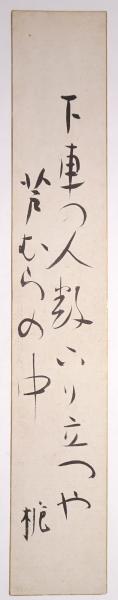 下車の人数おり立つや
芦むらの中
梔